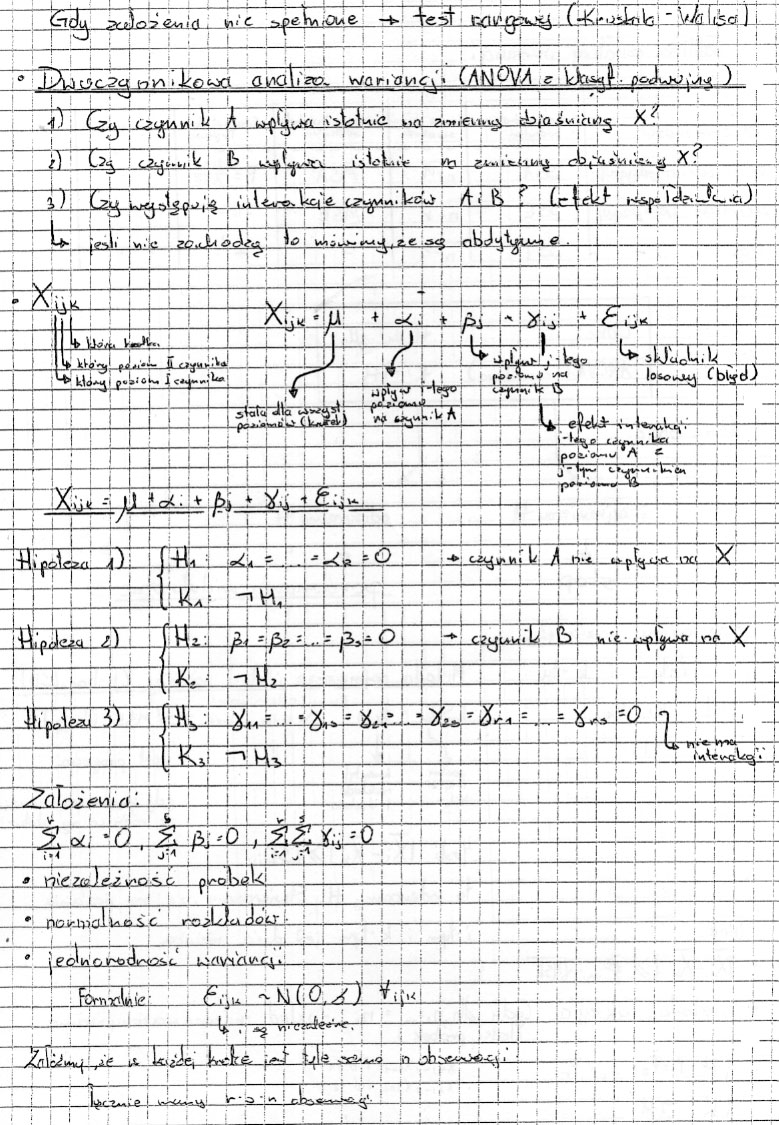 Gdy założenia nie spełnione → test rangowy (Kruskala-Walisa)
• Dwuczynnikowa analiza wariancji (ANOVA z klasyf. podwójną)
1) Czy czynnik A wpływa istotnie na zmienną objaśnianą X?
2) Czy czynnik B wpływa istotnie na zmienną objaśnianą X?
3) Czy występują interakcje czynników A i B? (efekt współdziałania)
↳ jeśli nie zachodzą to mówimy, że są abdytywne.
• Xijk
↳ która kratka
↳ który poziom II czynnika
↳ który poziom I czynnika
Xijk = μ + αi + βj + γij + εijk
stała dla wszyst. poziomów (kratek)
wpływ i-tego poziomu na czynnik A
wpływ j-tego poziomu na czynnik B
↳ składnik losowy (błąd)
↳ efekt interakcji i-tego czynnika poziomu A z j-tym czynnikiem poziomu B
Xijk = μ + αi + βj + γij + εijk
Hipoteza 1) { H1 α1 = ... = αr = 0 → czynnik A nie wpływa na X
K1: ¬H1
Hipoteza 2) { H2: β1 = β2 = ... = βs = 0 → czynnik B nie wpływa na X
K2: ¬H2
Hipoteza 3) { H3: γ11 = ... = γ1s = γ21 = ... = γ2s = γr1 = ... = γrs = 0
↳ nie ma interakcji
K3: ¬H3
Założenia:
∑_{i=1}^{r} αi = 0, ∑_{j=1}^{s} βj = 0, ∑_{i=1}^{r} ∑_{j=1}^{s} γij = 0
• niezależność próbek
• normalność rozkładów.
• jednorodność wariancji
Formalnie: εijk ~ N(0, σ) ∀ijk
↳ są niezależne.
Załóżmy, że w każdej kratce jest tyle samo n obserwacji.
Łącznie mamy r·s·n obserwacji